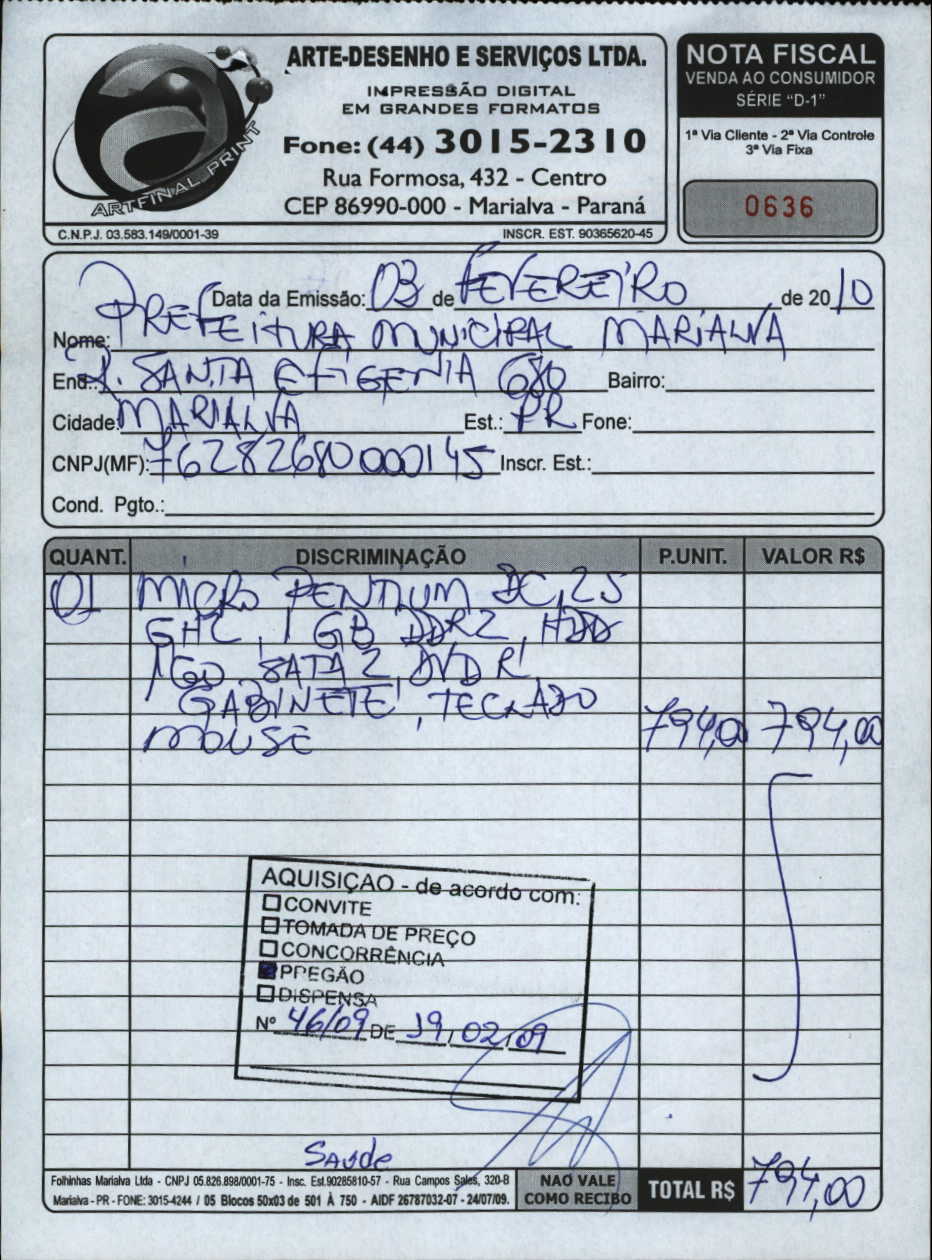 ARTE-DESENHO E SERVIÇOS LTDA.
IMPRESSÃO DIGITAL
EM GRANDES FORMATOS
Fone: (44) 3015-2310
Rua Formosa, 432 - Centro
CEP 86990-000 - Marialva - Paraná
ARTFINAL PRINT
C.N.P.J. 03.583.149/0001-39 INSCR. EST. 90365620-45
NOTA FISCAL
VENDA AO CONSUMIDOR
SÉRIE "D-1"
1ª Via Cliente - 2ª Via Controle
3ª Via Fixa
0636
Data da Emissão: 03 de FEVEREIRO de 2010
Nome: PREFEITURA MUNICIPAL MARIALVA
End.: R. SANTA EFIGENIA 680 Bairro:
Cidade: MARIALVA Est.: PR Fone:
CNPJ(MF): 76282680000145 Inscr. Est.:
Cond. Pgto.:
QUANT. DISCRIMINAÇÃO P.UNIT. VALOR R$
01 MICRO PENTIUM DC, 2.5
GHZ, 1 GB DDR2, HDD
160, SATA 2, DVD R
GABINETE, TECLADO
MOUSE 794,00 794,00
AQUISIÇAO - de acordo com:
CONVITE
TOMADA DE PREÇO
CONCORRÊNCIA
PREGÃO
DISPENSA
Nº 46/09 DE 19/02/09
Saude
Folhinhas Marialva Ltda - CNPJ 05.826.898/0001-75 - Insc. Est.90285810-57 - Rua Campos Sales, 320-B
Marialva - PR - FONE: 3015-4244 / 05 Blocos 50x03 de 501 À 750 - AIDF 26787032-07 - 24/07/09.
NAO VALE
COMO RECIBO
TOTAL R$ 794,00